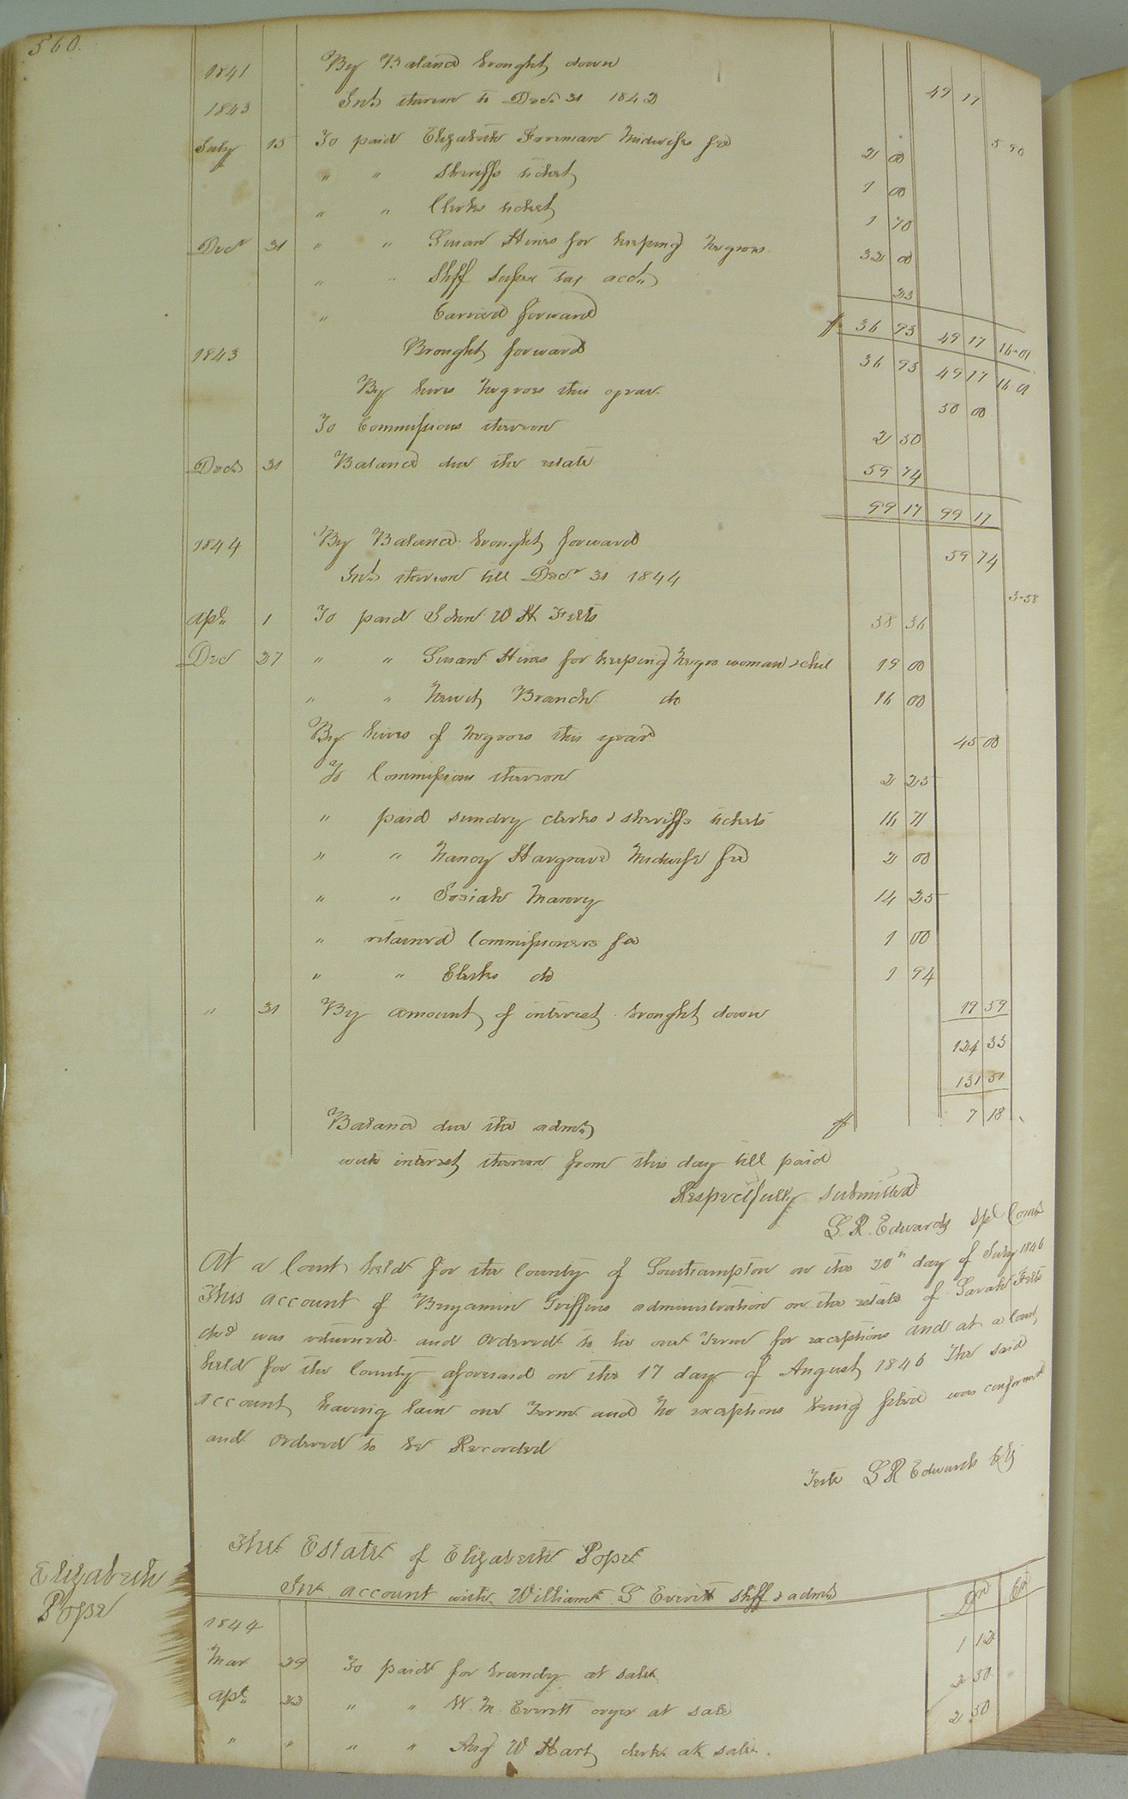 560.
1841 By Balance brought down 49 17
1843 Int. thereon to Decr 31 1842 5 90
July 15 To paid Elizabeth Foreman Midwifes fee 2 00
" " Sheriffs ticket 1 00
" " Clerks ticket 1 70
Decr 31 " " Susan Hines for keeping negroes 32 00
" " Shff Super tax acct. 23
" Carried forward $ 36 93 49 17 16-01
1843 Brought forward 36 93 49 17 16 01
By hires negroes this year 50 00
To Commissions thereon 2 50
Decr 31 Balance due the estate 59 74
99 17 99 17
1844 By Balance brought forward 59 74
Int. thereon till Decr 31 1844 3-58
Apl. 1 To paid John W H Felts 58 36
Dec 27 " " Susan Hines for keeping negro woman & chil 19 00
" " Newit Branch do 16 00
By hires of negroes this year 45 00
To Commissions thereon 2 25
" paid sundry clerks & sheriffs tickets 16 71
" " Nancy Hargrave Midwife fee 2 00
" " Josiah Manry 14 25
" retained Commissioners fee 1 00
" " Clerks do 1 94
" 31 By amount of interest brought down 19 59
124 33
131 51
Balance due the admr. $ 7 18
with interest thereon from this day till paid
Respectfully submitted
L. R. Edwards Spl Comr
At a Court held for the County of Southampton on the 20th day of July 1846
This account of Benjamin Griffins administration on the estate of Sarah Felts
decd was returned and ordered to lie one Term for exceptions and at a Court
held for the County aforesaid on the 17 day of August 1846 The said
account having lain one Term and no exceptions being filed was confirmed
and ordered to be Recorded
Teste L R Edwards Clk
Elizabeth
Pope
The Estate of Elizabeth Pope
In account with William S Everitt Shff & admr Dr Cr
1844
Mar 29 To paid for brandy at sale 1 12
Apl. 22 " " W. M. Everitt cryer at sale 2 50
" " " " Aug W Hart clerk at sale. 2 50